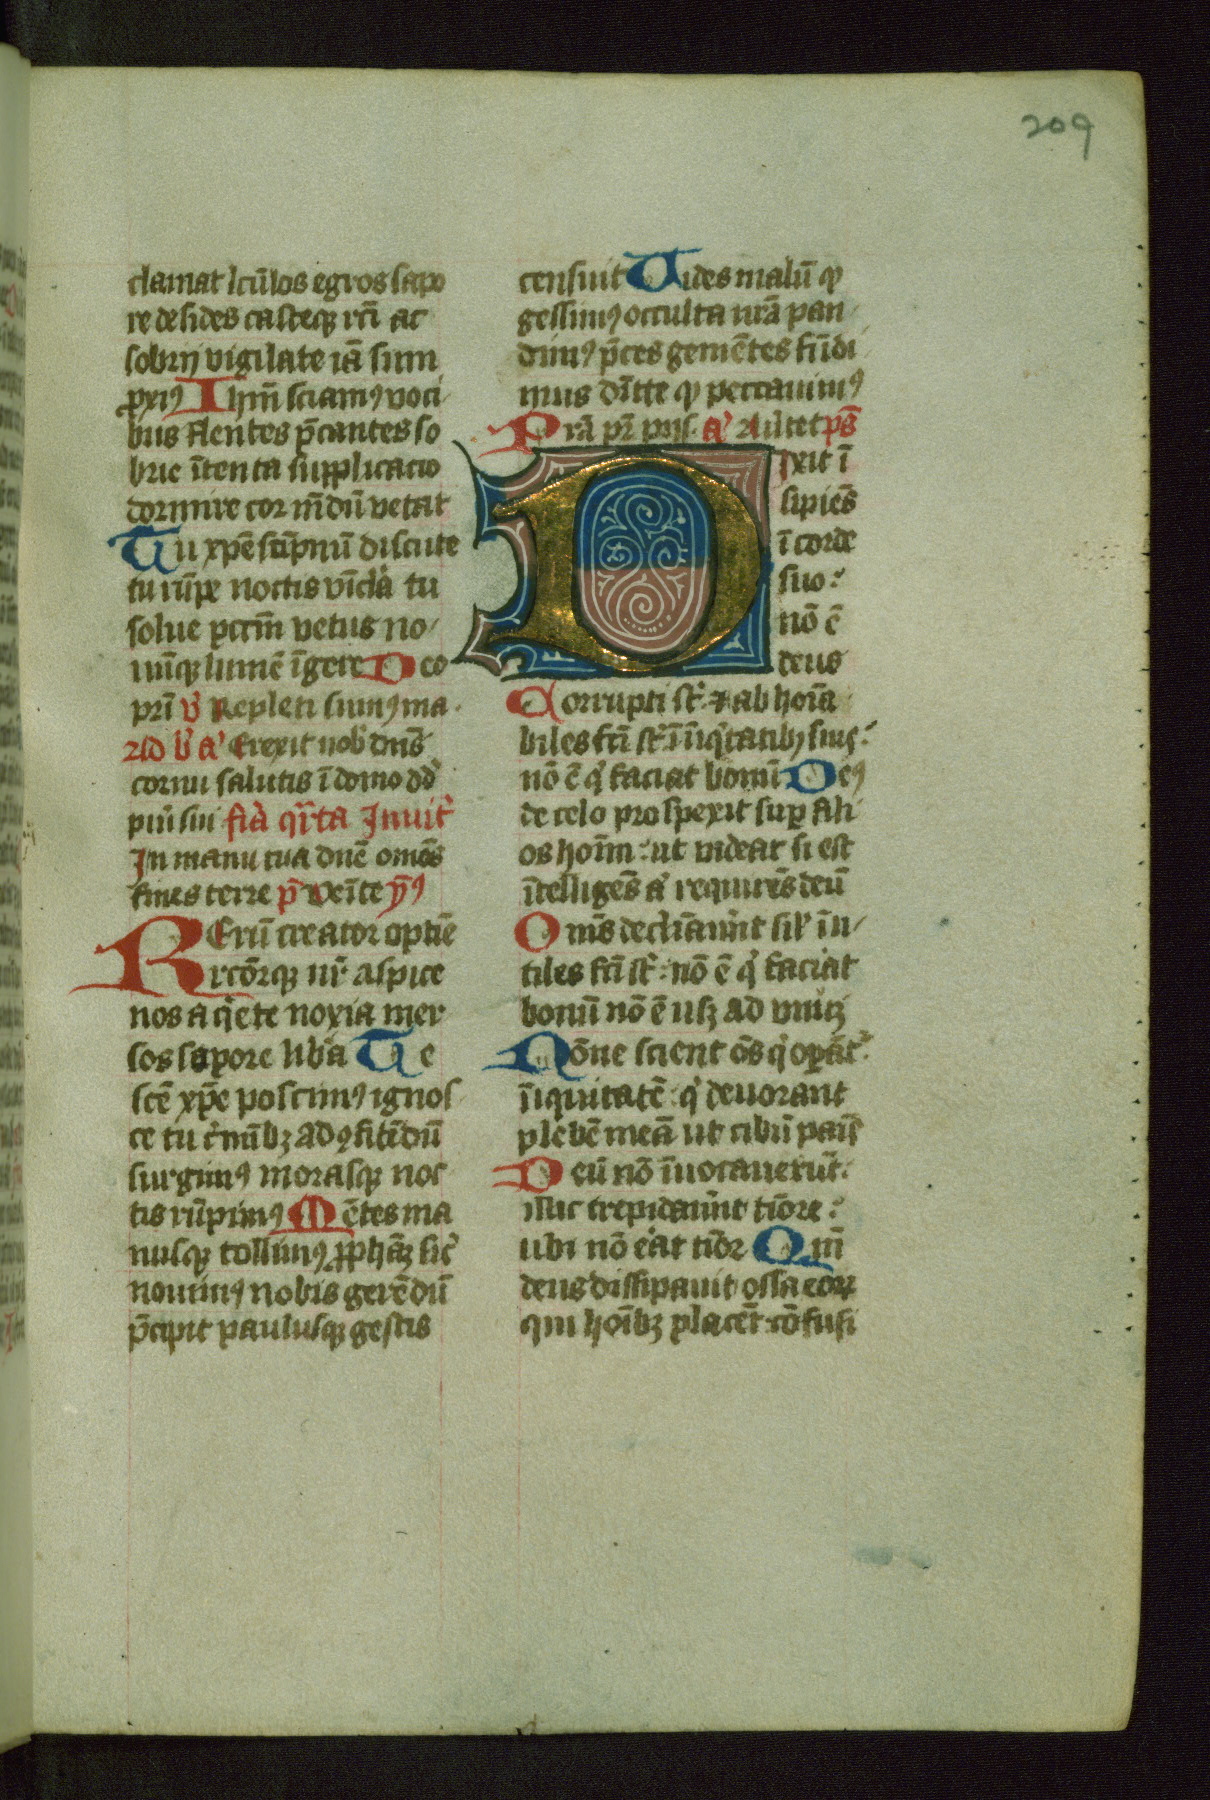 209
clamat lcūlos egros sapo
re desides casteqꝫ rcī ac
sobrij vigilate iā sum
proxiꝰ Ihm̄ sciamꝰ voci
bus flentes p̄cantes so
brie ītenta supplicacio
dormire cor m̄dū vetat
Tu xp̄e sōpnū discute
tu rūpe noctis vīcla tu
solue pccm̄ vetus no
uūqꝫ lumē īgere Deo
pr̄i v̓ Repleti sumꝰ ma
Ad b̓ a̓ Erexit nob̓ dn̄s
cornu salutis ī domo dd̓
pueri sui fīa qr̄ta Inuit̓
In manu tua dn̄e om̄s
fines terre p̄s Veīte ym̄ꝰ
Rerū creator optīe
rcōrqꝫ nr̄ aspice
nos a q̓ete noxia mer
sos sopore lib̓a Te
scē xp̄e poscimꝰ ignos
ce tu c̓mībꝫ ad ꝯfitēdū
surgimꝰ morasqꝫ noc
tis rūpimꝰ Mētes ma
nusqꝫ tollimꝰ prophāꝫ sic̓
nouimꝰ nobis gerēdū
p̄cipit paulusqꝫ gestis
censuit Vides malū qꝫ
gessimꝰ occulta nr̄a pan
dimꝰ p̄ces gemētes fūdi
mus dīitte qꝫ peccauimꝰ
Pr̄a pr̄ pijs. a̓ Au̓tet ps̄
Dixit ī
sipiēs
ī corde
suo:
nō ē
deus
Corrupti st̄ ⁊ abhoīa
biles fcī st̄ ī īiq̓tatibꝫ suis:
nō ē q̓ faciat bonū Deꝰ
de celo prospexit sup fili
os hoīm: ut videat si est
ītelligēs a̓ requirēs deū
Om̄s declīauerūt sil̓ īu
tiles fcī st̄: nō ē q̓ faciat
bonū nō ē usqꝫ ad vnū
Nōne scient ōs q̓ oꝑāt̓
īiquitatē: q̓ deuorant
plebē meā ut cibū panis
Deū nō īuocauerūt:
illic trepidauerūt tīore:
ubi nō erat tīor Qm̄
deus dissipauit ossa eorꝝ
qui hoībꝫ placēt: cōfusi